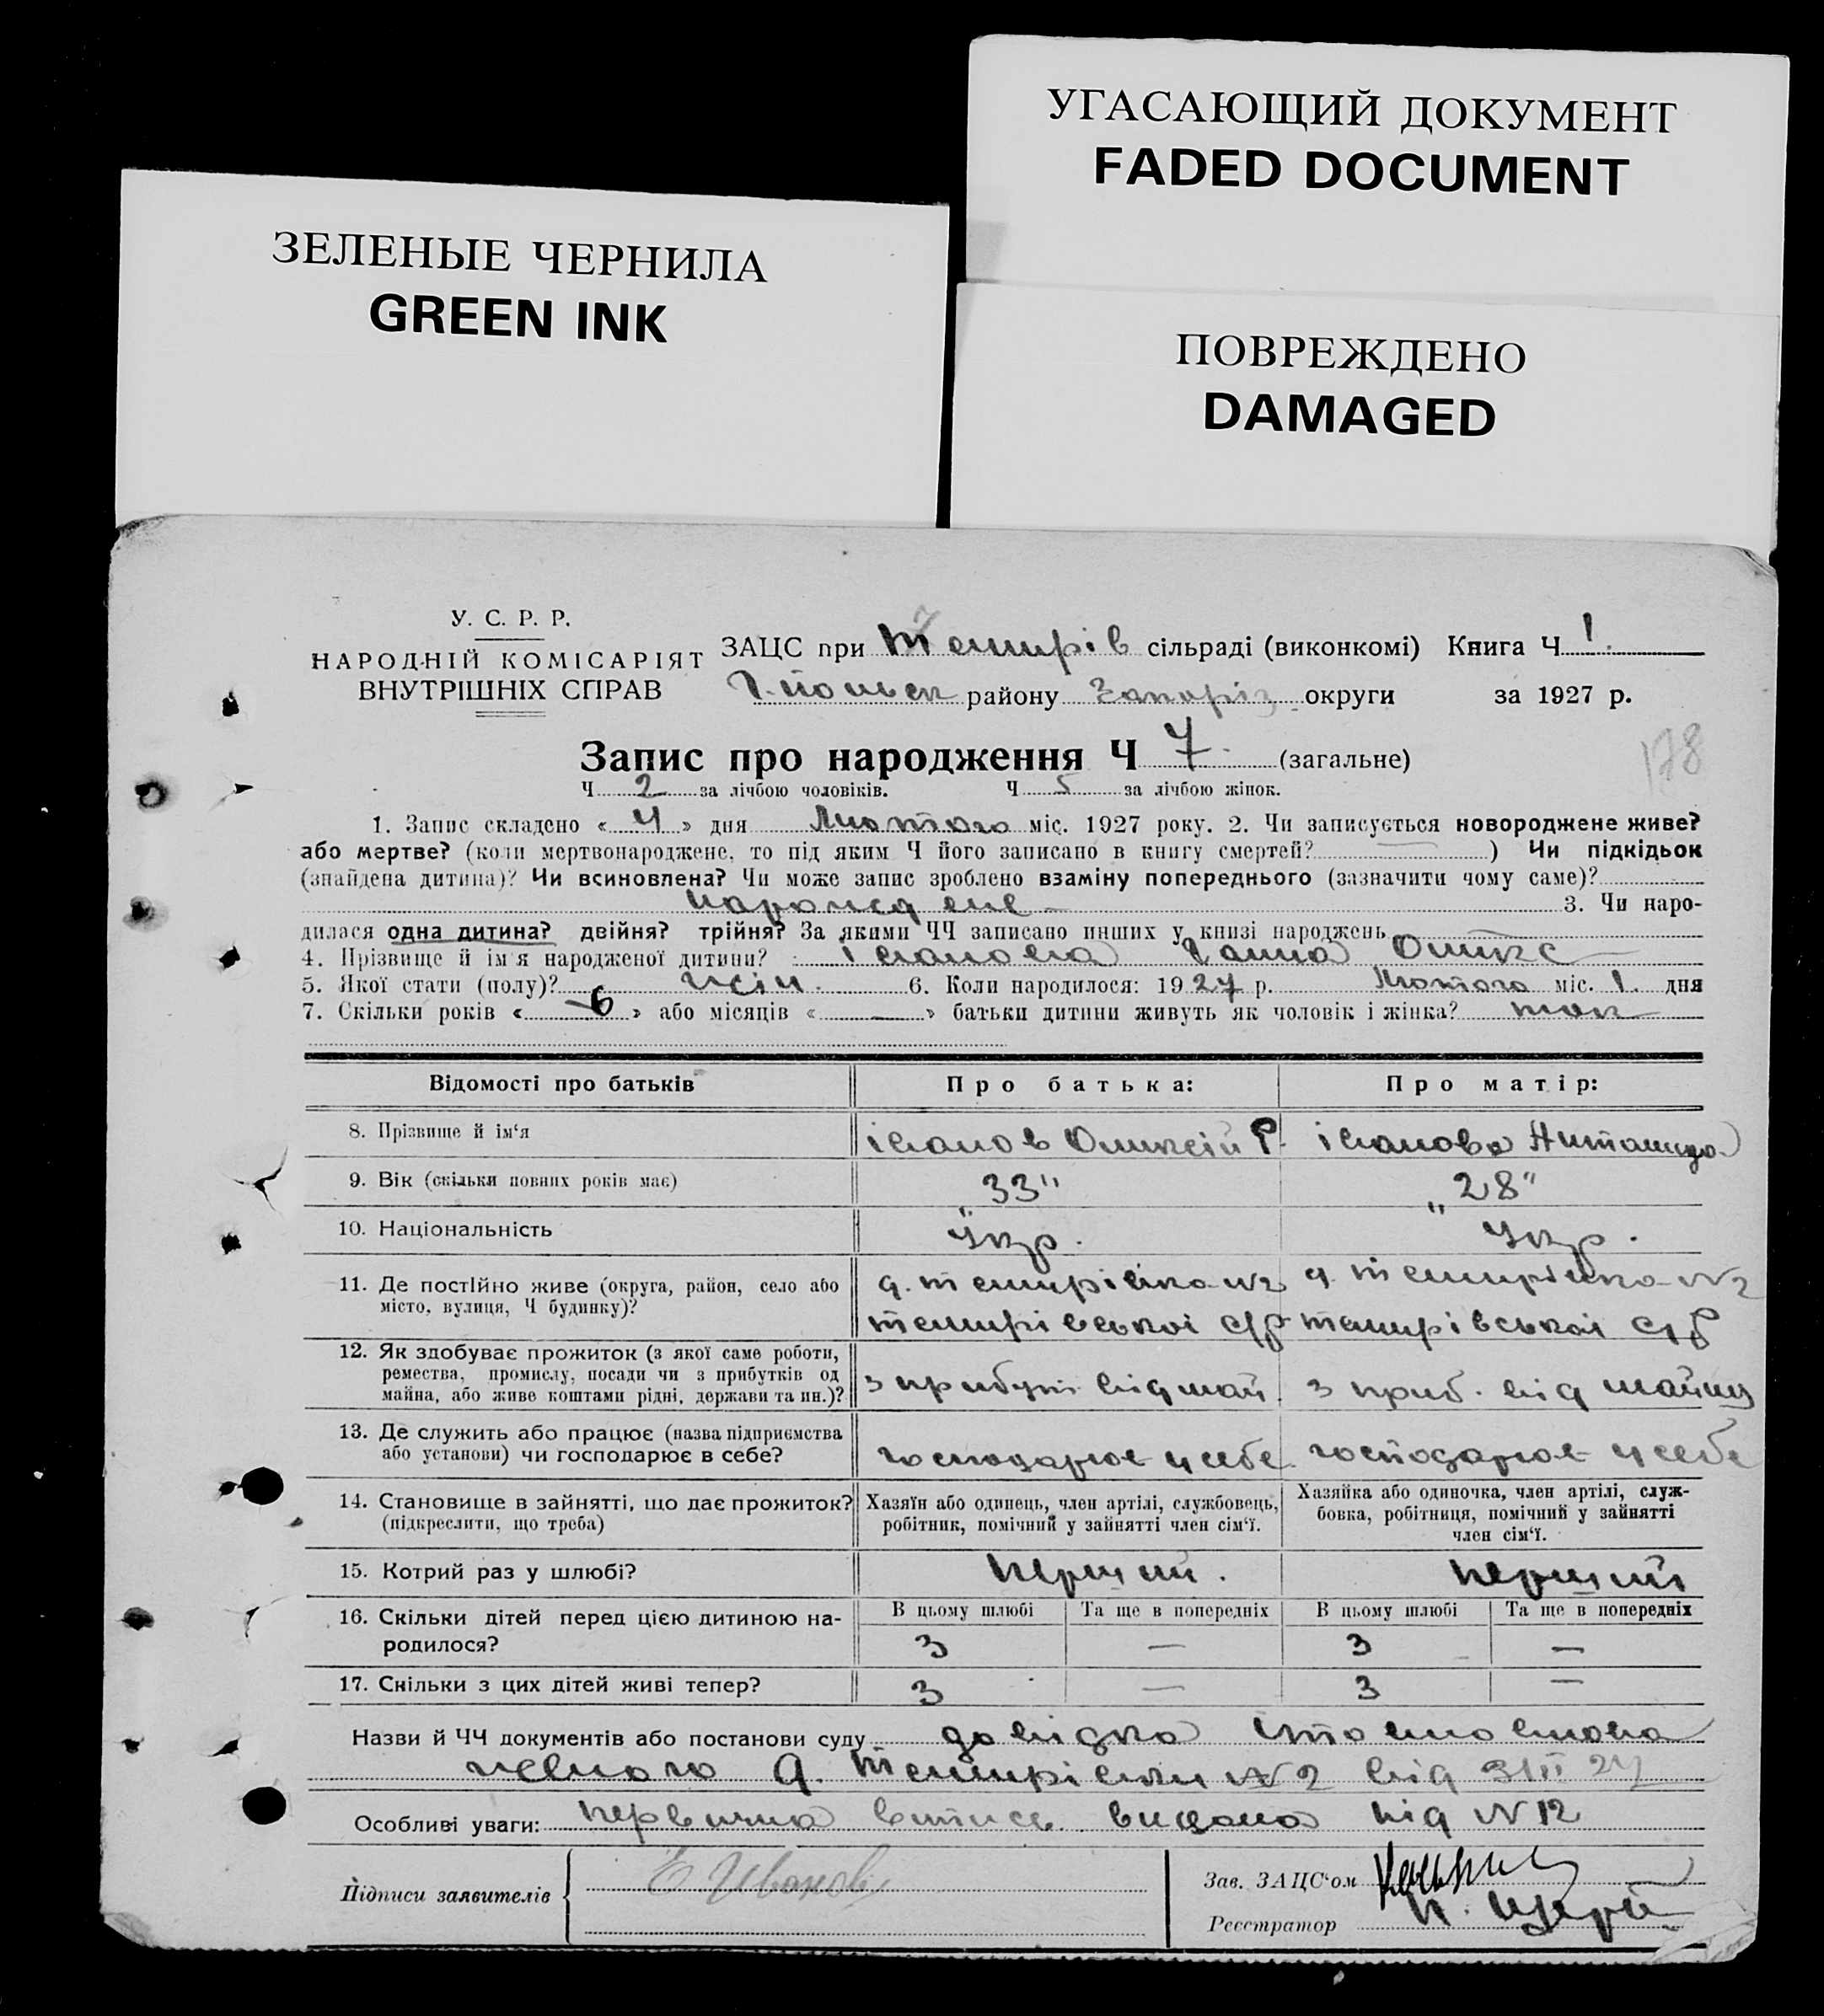 УГАСАЮЩИЙ ДОКУМЕНТ
FADED DOCUMENT
ЗЕЛЕНЫЕ ЧЕРНИЛА
GREEN INK
ПОВРЕЖДЕНО
DAMAGED
У. С. Р. Р.
НАРОДНІЙ КОМІСАРІЯТ
ВНУТРІШНІХ СПРАВ
ЗАЦС при Темирів сільраді (виконкомі) Книга Ч 1.
району Запоріз. округи за 1927 р.
178
Запис про народження Ч 7. (загальне)
Ч 2 за лічбою чоловіків. Ч 5 за лічбою жінок.
1. Запис складено « 4 » дня Лютого міс. 1927 року. 2. Чи записується новороджене живе?
або мертве? (коли мертвонароджене, то під яким Ч його записано в книгу смертей? ) Чи підкідьок
(знайдена дитина)? Чи всиновлена? Чи може запис зроблено взаміну попереднього (зазначити чому саме)?
3. Чи наро-
дилася одна дитина? двійня? трійня? За якими ЧЧ записано инших у книзі народжень
4. Прізвище й ім'я народженої дитини? іванова Ганна Оликс
5. Якої стати (полу)? жін. 6. Коли народилося: 1927 р. Лютого міс. 1. дня
7. Скільки років « 6 » або місяців « — » батьки дитини живуть як чоловік і жінка? так
Відомості про батьків
Про батька:
Про матір:
8. Прізвище й ім'я
іванов Оликсій Р.
іванова
9. Вік (скільки повних років має)
"33"
"28"
10. Національність
Укр.
Укр.
11. Де постійно живе (округа, район, село або
місто, вулиця, Ч будинку)?
д. темирівка №2
темирівської с/р
д. темирівка №2
темирівської с/р
12. Як здобуває прожиток (з якої саме роботи,
ремества, промислу, посади чи з прибутків од
майна, або живе коштами рідні, держави та ин.)?
з прибут. від май
з приб. від майну
13. Де служить або працює (назва підприємства
або установи) чи господарює в себе?
господарює у себе
господарює у себе
14. Становище в зайнятті, що дає прожиток?
(підкреслити, що треба)
Хазяїн або одинець, член артілі, службовець,
робітник, помічний у зайнятті член сім'ї.
Хазяйка або одиночка, член артілі, служ-
бовка, робітниця, помічний у зайнятті
член сім'ї.
15. Котрий раз у шлюбі?
перший.
перший
16. Скільки дітей перед цією дитиною на-
родилося?
В цьому шлюбі
Та ще в попередніх
В цьому шлюбі
Та ще в попередніх
3 — 3 —
17. Скільки з цих дітей живі тепер?
3 — 3 —
Назви й ЧЧ документів або постанови суду довідка
д. Темирівки №2 від
Особливі уваги: первична випись видана під №12
Підписи заявителів
Е Иванов
Зав. ЗАЦС'ом
Реєстратор